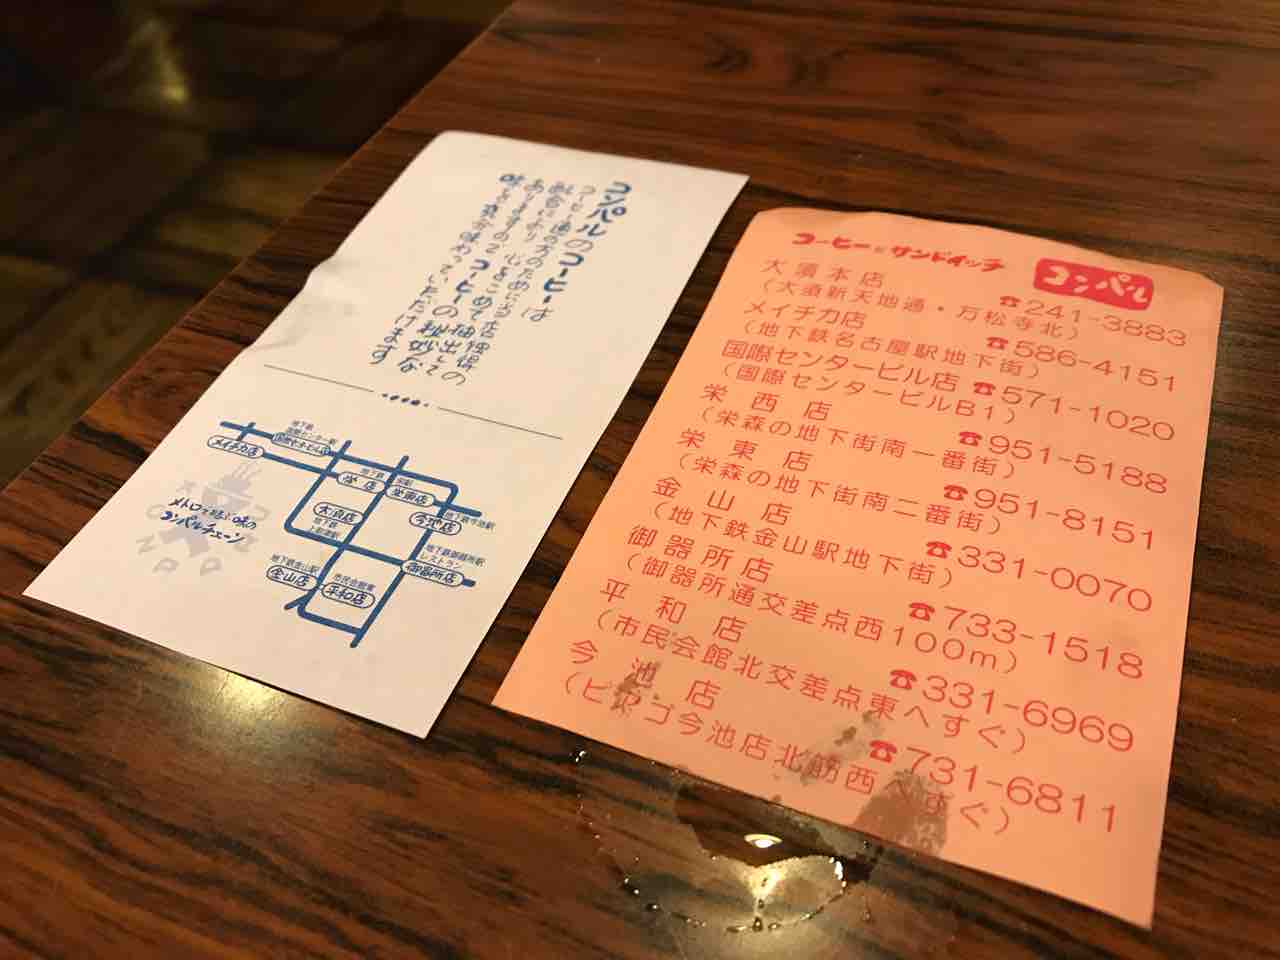 コンパルのコーヒーは
コーヒー通の方のために当店独得の
配合により 心をこめて抽出して
あります
味を充分味わっていただけます
メイチカ店
地下鉄
国際センター駅
国際センタービル店
地下鉄
栄店
栄駅
栄東店
今池店
地下鉄今池駅
大須店
地下鉄
地下鉄御器所駅
レストラン
御器所店
地下鉄金山駅
金山店
市民会館東
平和店
メトロで結ぶ味の
コンパルチェーン
コーヒーとサンドイッチ コンパル
大須本店 ☎241-3883
(大須新天地通・万松寺北)
メイチカ店 ☎586-4151
(地下鉄名古屋駅地下街)
国際センタービル店 ☎571-1020
(国際センタービルB1)
栄西店 ☎951-5188
(栄森の地下街南一番街)
栄東店 ☎951-8151
(栄森の地下街南二番街)
金山店 ☎331-0070
(地下鉄金山駅地下街)
御器所店 ☎733-1518
(御器所通交差点西100m)
平和店 ☎331-6969
(市民会館北交差点東へすぐ)
今池店 ☎731-6811
(ピアゴ今池店北筋西へすぐ)